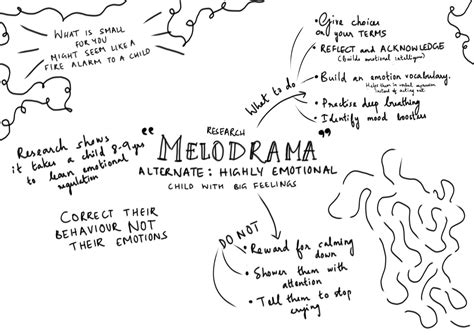 WHAT IS SMALL
FOR YOU
MIGHT SEEM LIKE A
FIRE ALARM TO A CHILD
Research shows
it takes a child 8-9 yrs
to learn emotional
regulation
CORRECT THEIR
BEHAVIOUR NOT
THEIR EMOTIONS
RESEARCH
"MELODRAMA"
ALTERNATE: HIGHLY EMOTIONAL
CHILD WITH BIG FEELINGS
What to do
• Give choices
on your TERMS
• REFLECT and ACKNOWLEDGE
(Builds emotional intelligence)
• Build an emotion vocabulary.
Helps them in verbal expression
instead of acting out
• Practise deep breathing
• Identify mood boosters
DO NOT
• Reward for calming
down
• Shower them with
attention
• Tell them to stop
crying